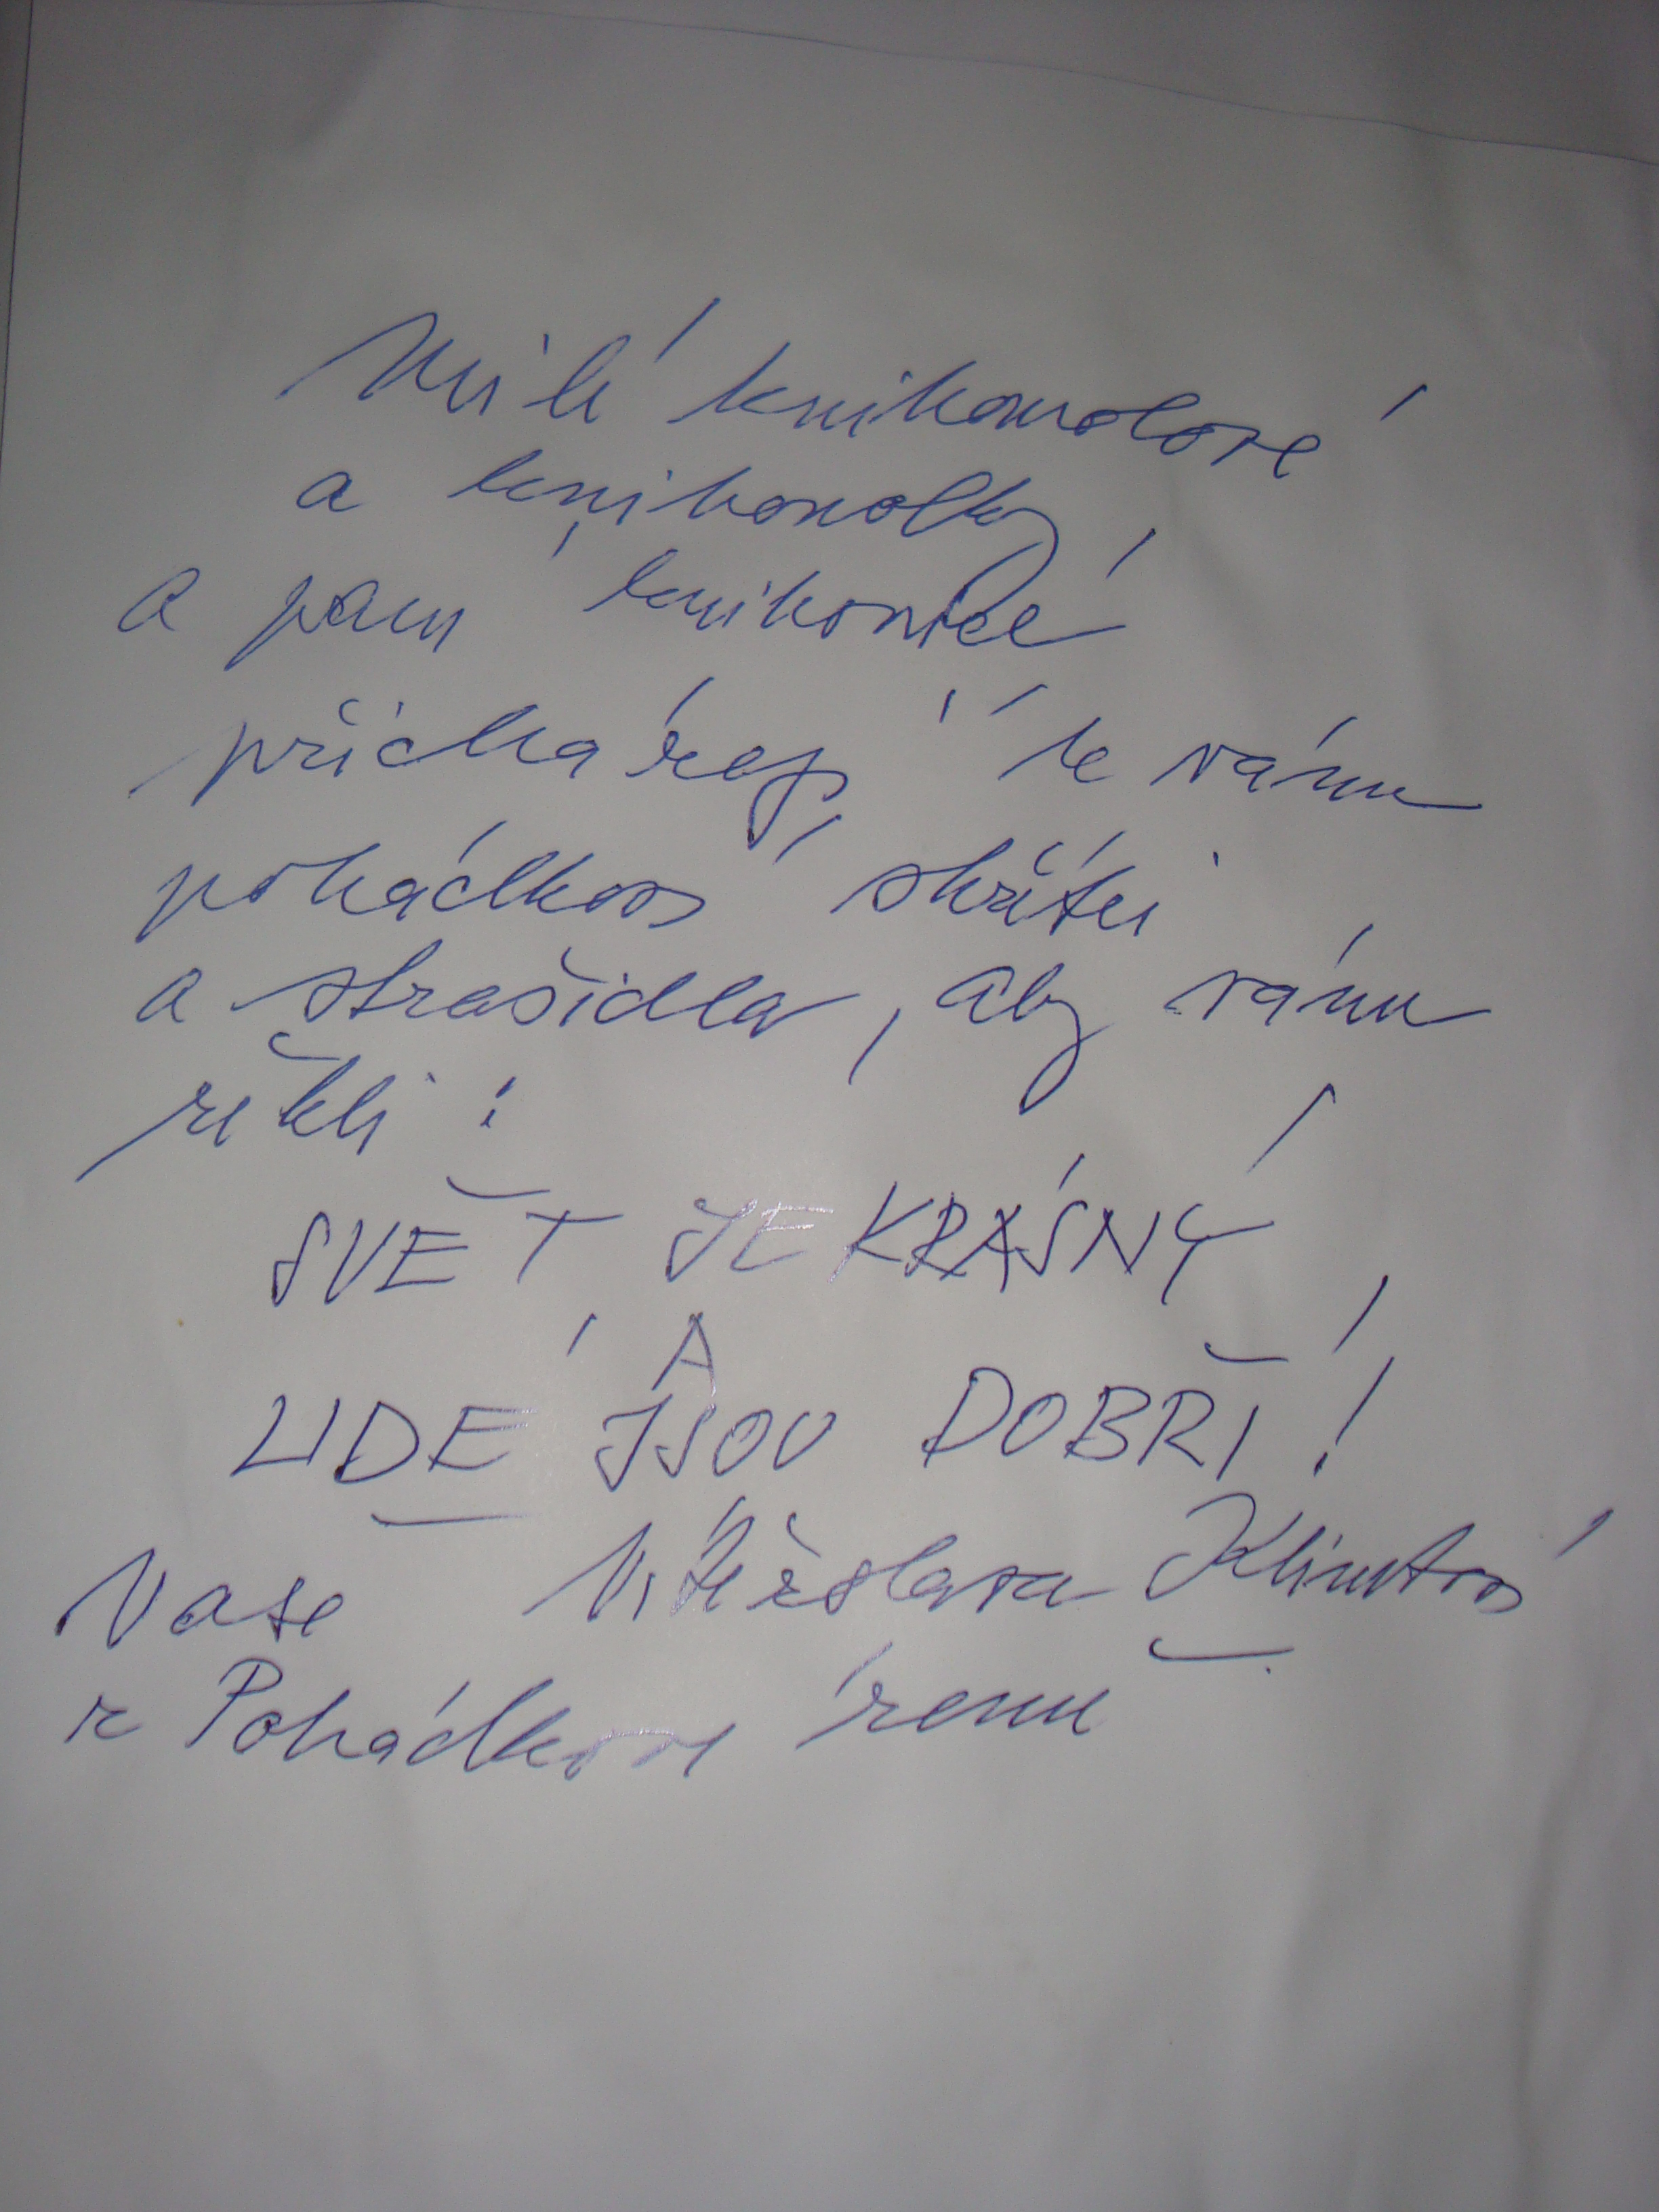 Milé knihomolové
a knihomolky,
a paní knihovnice
přicházejí k vám
pohádkoví skřítci
a strašidla, aby vám
řekli:
SVĚT JE KRÁSNÝ!
A
LIDÉ JSOU DOBŘÍ!
Vaše Vítězslava Klimtová
z Pohádkové země